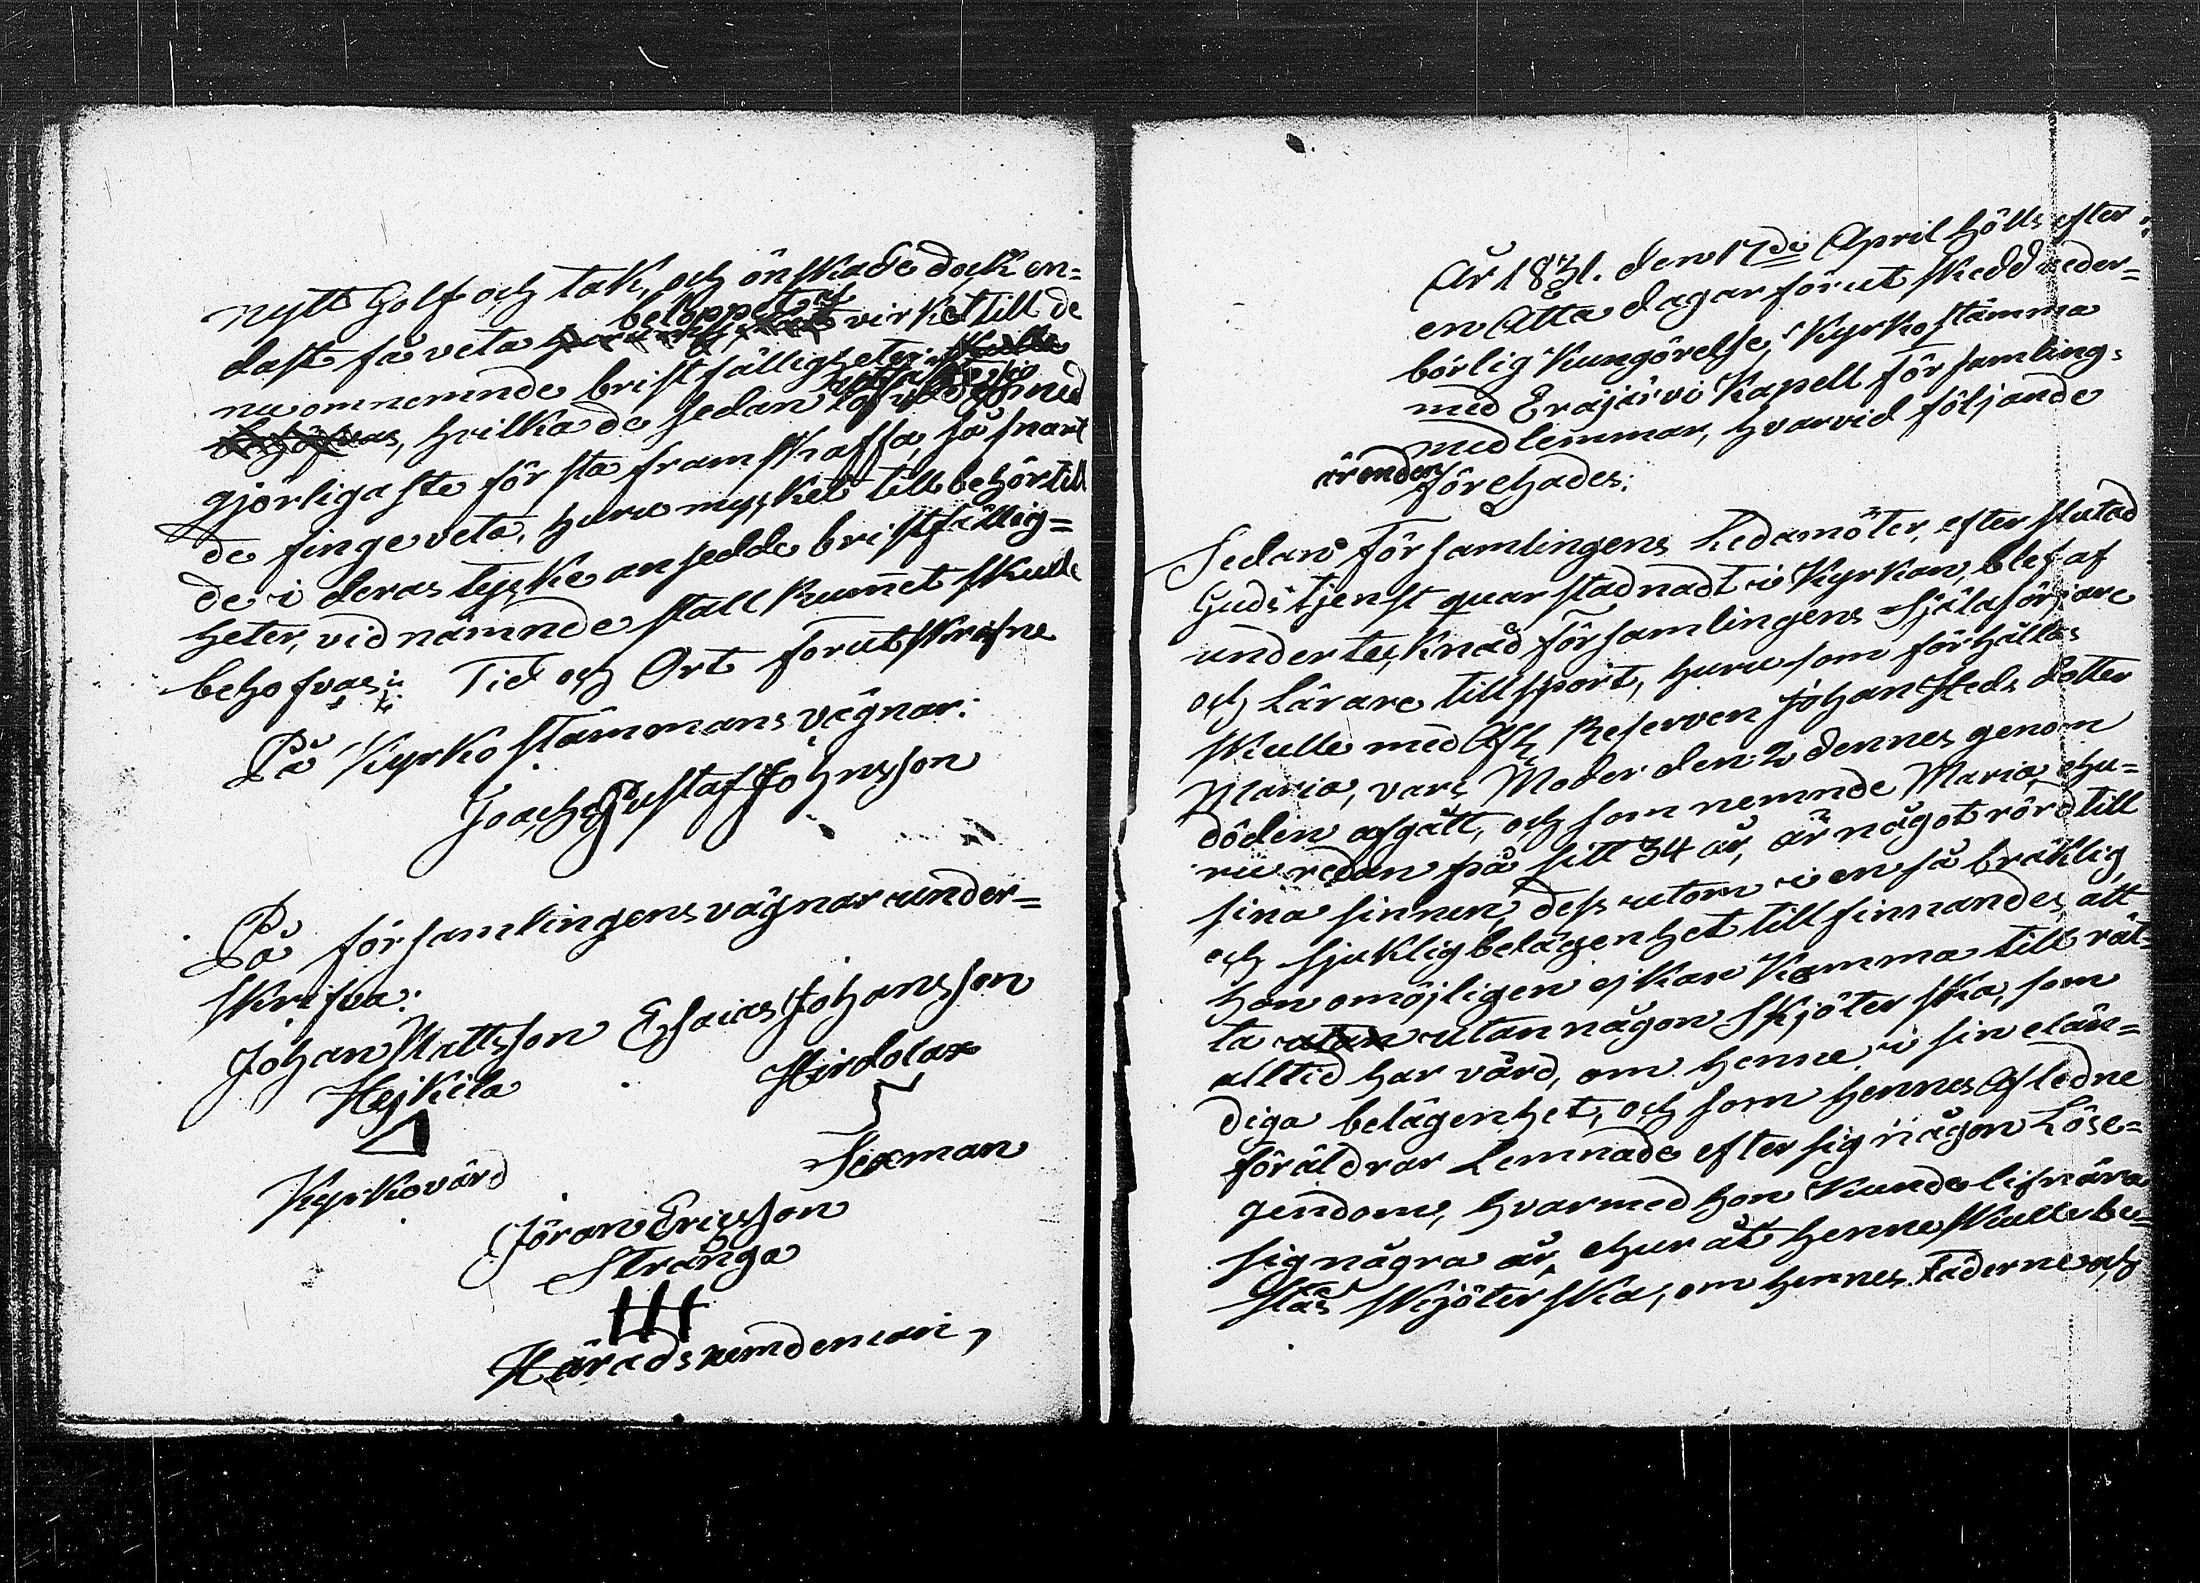 nytt Golf och tak, och önskade dock en=
dast få veta beloppet af virket till de
nu omnemnde bristfälligheter
, hvilka de sedan lofvade med
gjörligaste första framskaffa, så snart
de finge veta, huru mycket tillbehör till
de i deras tycke ansedde bristfällig=
heter, vid nämnde stall Rummet skulle
behofvas; Tid och Ort förutskrefne
På Kyrkostämmans vägnar:
Joach Gustaf Johnsson
På församlingens vägnar under=
skrifva:
Johan Mattsson Esaias Johansson
Hejkila Hirdolax
Kyrkovärd Sexman
Jöran Ericsson
Stränga
Häradsnemdeman,
År 1831. den 17de April hölls efter
en Åtta dagar förut skedd veder=
börlig Kungörelse, Kyrkostämma
med Eräjärvi Kapell Församlings
medlemmar, hvarvid följande
ärenden förehades:
Sedan Församlingens Ledamöter, efter slutad
Gudstjenst quarstadnadt i Kyrkan, blef af
undertecknad Församlingens Själasörjare
och Lärare tillsport, huru som förhållas
skulle med Afl. Reserven Johan Steds dotter
Maria, vars Moder den 2 dennes genom
döden afgått, och som nemnde Maria, ehu=
ru redan på sitt 34 år, är något rörd till
sina sinnen, dess utom i en så bräklig
och sjuklig belägenhet tillfinnandes att
hon omöjligen ej kan komma till rät=
ta utan utan någon Skjöterska, som
alltid har vård, om henne i sin elän=
diga belägenhet, och som hennes Aflidne
föräldrar Lemnade efter sig någon Löse=
gendom, hvarmed hon kunde lifnära
sig några år, ehur åt henne skulle be=
stås skjöterska, om hennes Fäderne och